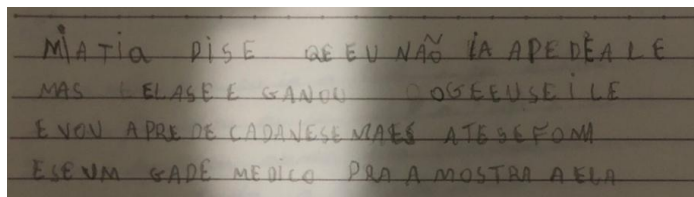 MIA TIA DISE QE EU NÃO IA APEDÊA LE
MAS ELASE E GANOU OGEEUSEI LE
E VOU APRE DE CADAVESE MAES ATE SE FOM
ESE UM GADE MEDICO PRA A MOSTRA A ELA